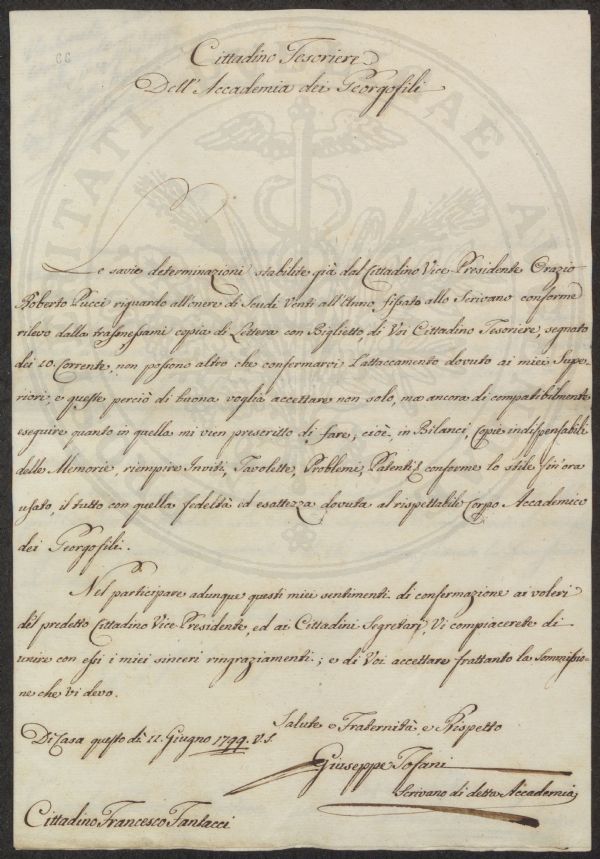 Cittadino Tesoriere
Dell'Accademia dei Georgofili
Le savie determinazioni stabilite già dal Cittadino Vice-Presidente Orazio
Roberto Pucci riguardo all'onere di Scudi Venti all'Anno, fissato allo Scrivano conforme
rilevo dalla trasmessami copia di Lettera con Biglietto, di Voi Cittadino Tesoriere, segnato
dei 10. Corrente, non possono altro che confermarci l'attaccamento dovuto ai miei Supe-
riori, e queste perciò di buona voglia accettare non solo, ma ancora di compatibilmente
eseguire quanto in quella mi vien prescritto di fare, cioè, in Bilanci, Copie indispensabili
delle Memorie, riempire Inviti, Tavolette, Problemi, Patenti conforme lo stile fin'ora
usato, il tutto con quella fedeltà ed esattezza dovuta al rispettabile Corpo Accademico
dei Georgofili.
Nel participare adunque questi miei sentimenti di confermazione ai voleri
del predetto Cittadino Vice-Presidente, ed ai Cittadini Segretari, Vi compiacerete di
unire con essi i miei sinceri ringraziamenti; e di Voi accettare frattanto la sommissio-
ne che vi devo.
Salute e Fraternità e Rispetto
Di Casa questo dì 11. Giugno 1799. V.S.
Giuseppe Tofani
Scrivano di detta Accademia
Cittadino Francesco Fantacci